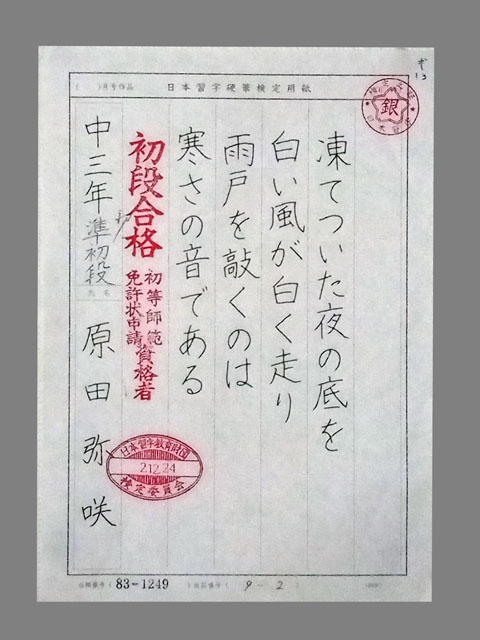 (　)月号作品　日本習字硬筆検定用紙
銀
凍てついた夜の底を
白い風が白く走り
雨戸を敲くのは
寒さの音である
初段合格
初等師範
免許状申請資格者
中三年 準初段 原田弥咲
氏名
日本習字教育財団
2.12.24
検定委員会
83-1249
9-2